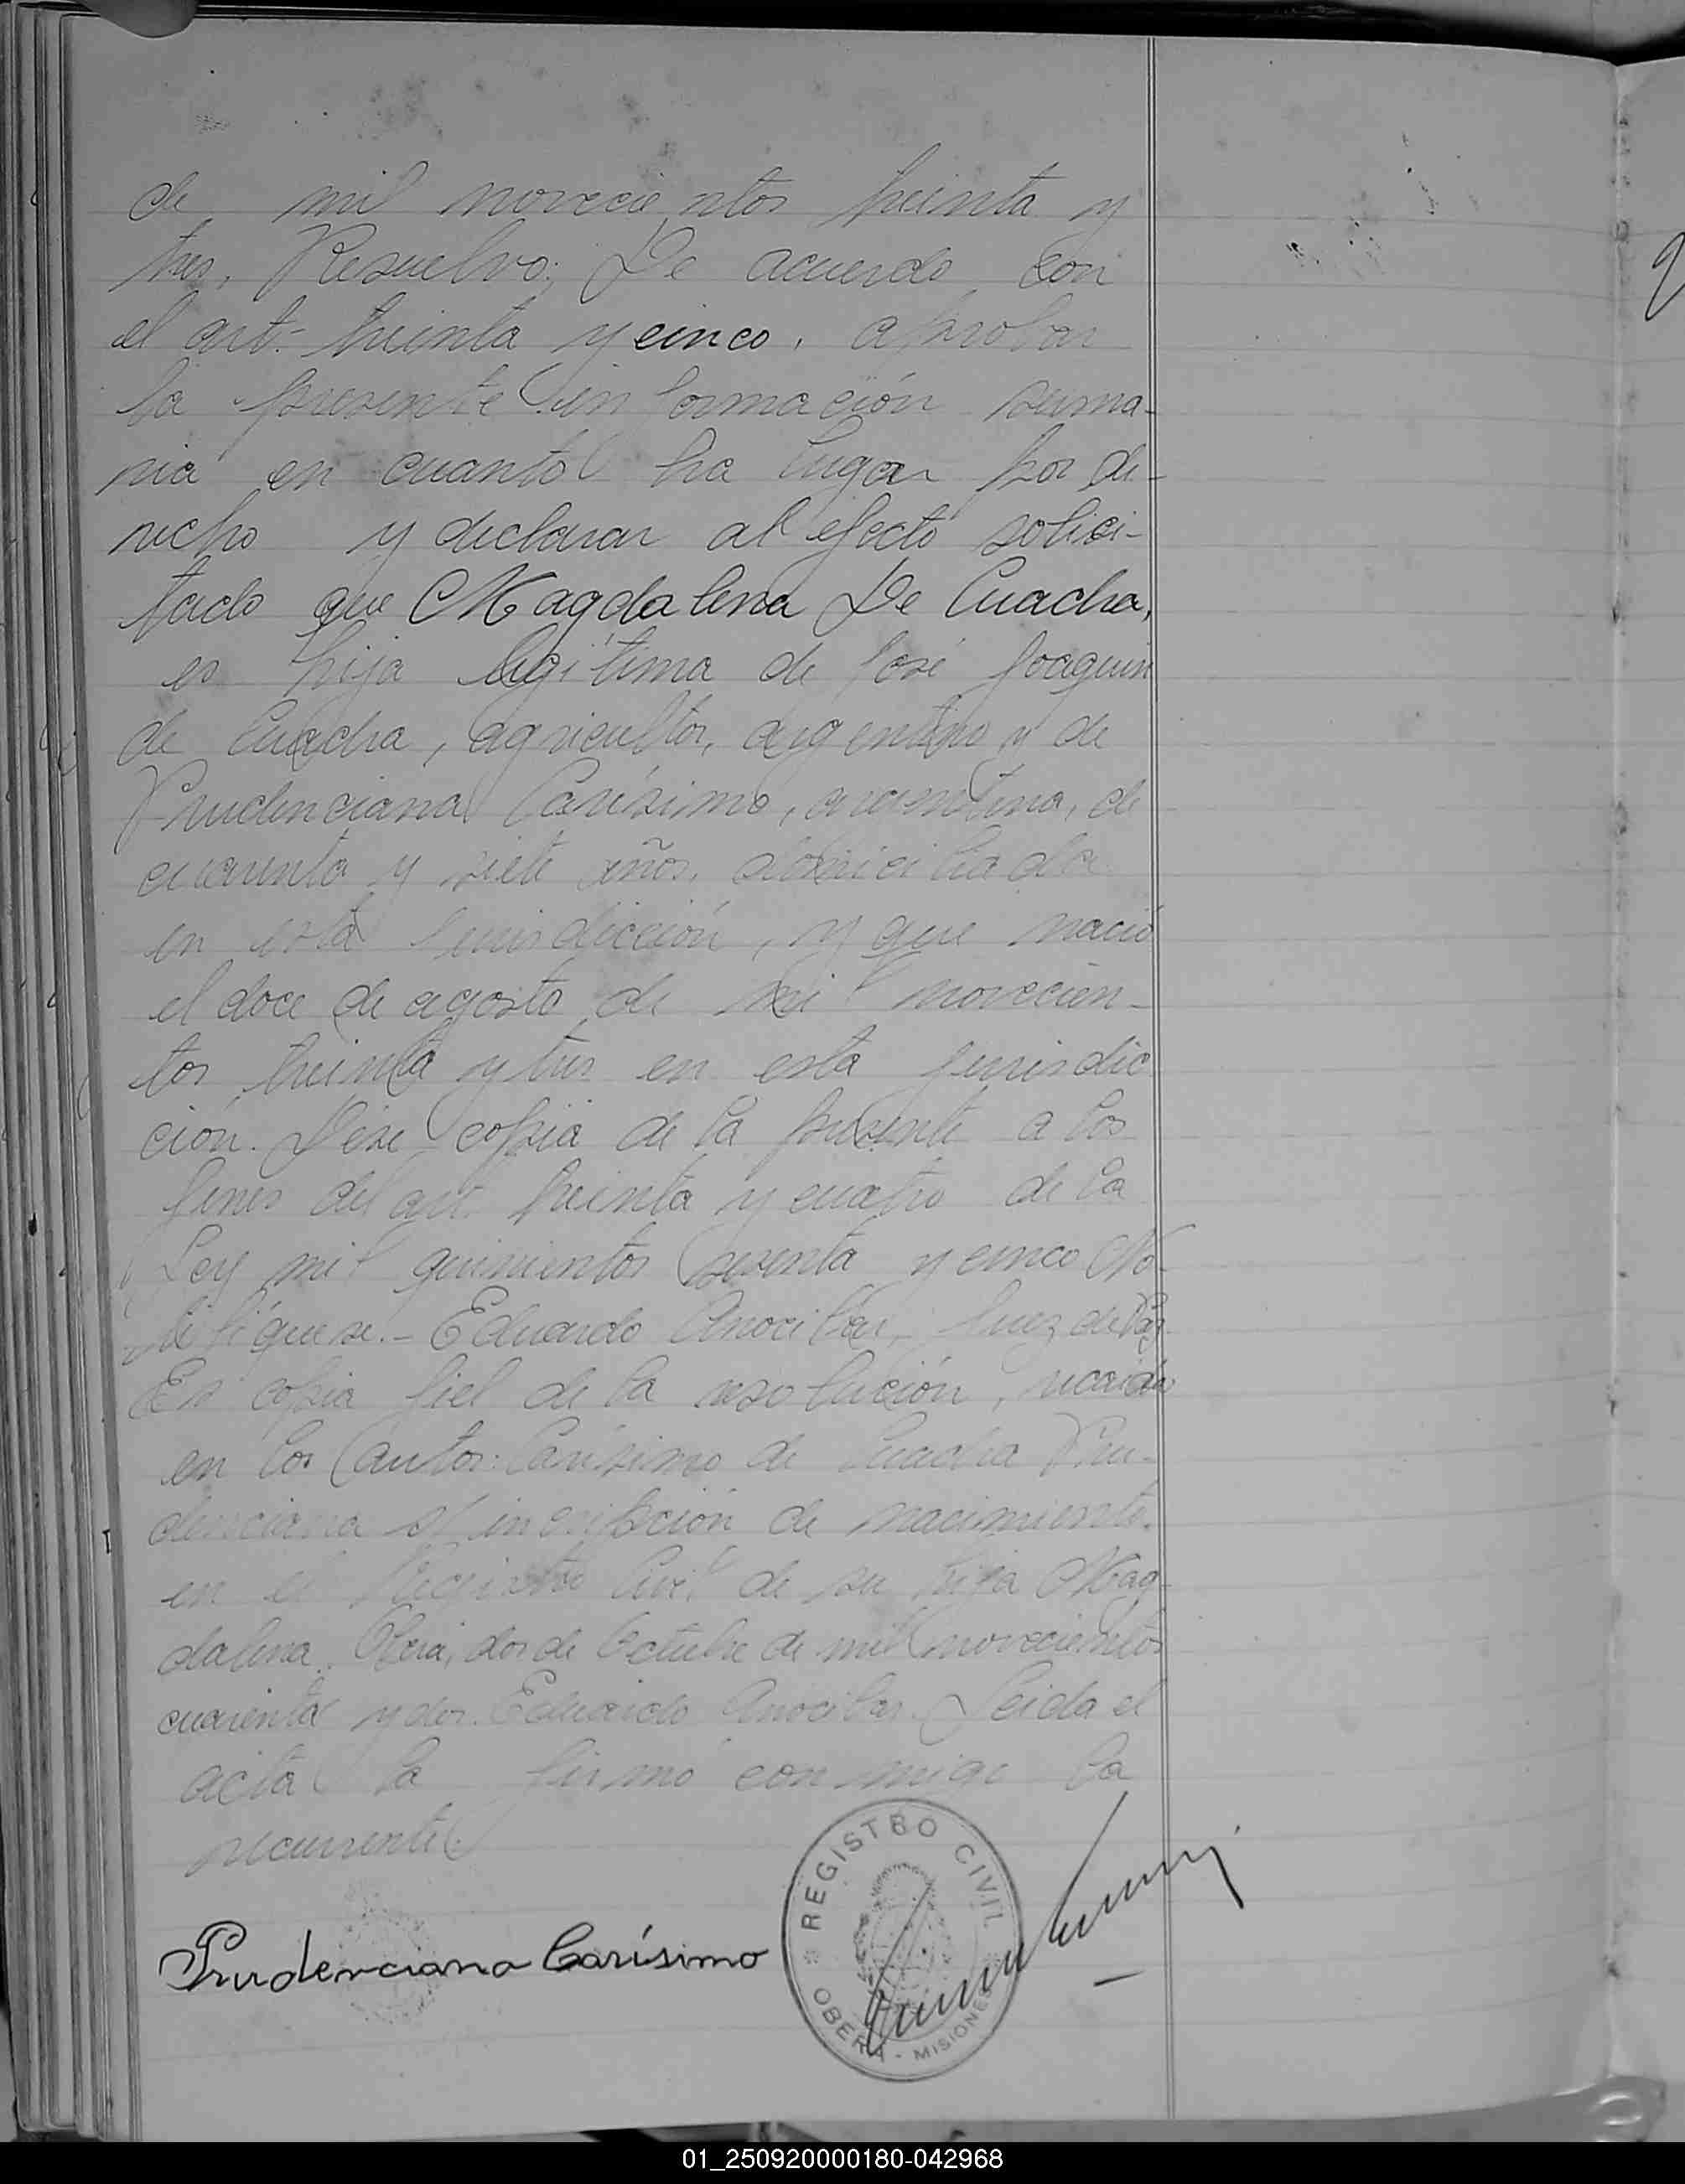 de mil novecientos treinta y
tres, Resuelvo: De acuerdo con
el art. treinta y cinco, aprobar
la presente información suma-
ria en cuanto ha lugar por de-
recho y declarar al efecto solici-
tado que Magdalena De Cuadra,
es hija legítima de José Joaquin
de Cuadra, agricultor, argentino y de
Prudenciana Carísimo, argentina, de
cuarenta y siete años, domiciliada
en esta jurisdicción, y que nació
el doce de agosto de mil novecien-
tos treinta y tres en esta jurisdic
ción. Dése copia de la presente a los
fines del art. treinta y cuatro de la
Ley mil quinientos sesenta y cinco No-
tifíquese.- Eduardo Anocibar, Juez de Paz
Es copia fiel de la resolución, recaída
en los autos: Carísimo de Cuadra Pru-
denciana s/ inscripción de nacimiento
en el Registro Civil de su hija Mag-
dalena. Oberá, dos de Octubre de mil novecientos
cuarenta y dos. Eduardo Anocibar. Leida el
acta la firmó conmigo la
recurrente.
Prudenciana Carísimo
REGISTRO CIVIL
OBERA - MISIONES
01_250920000180-042968